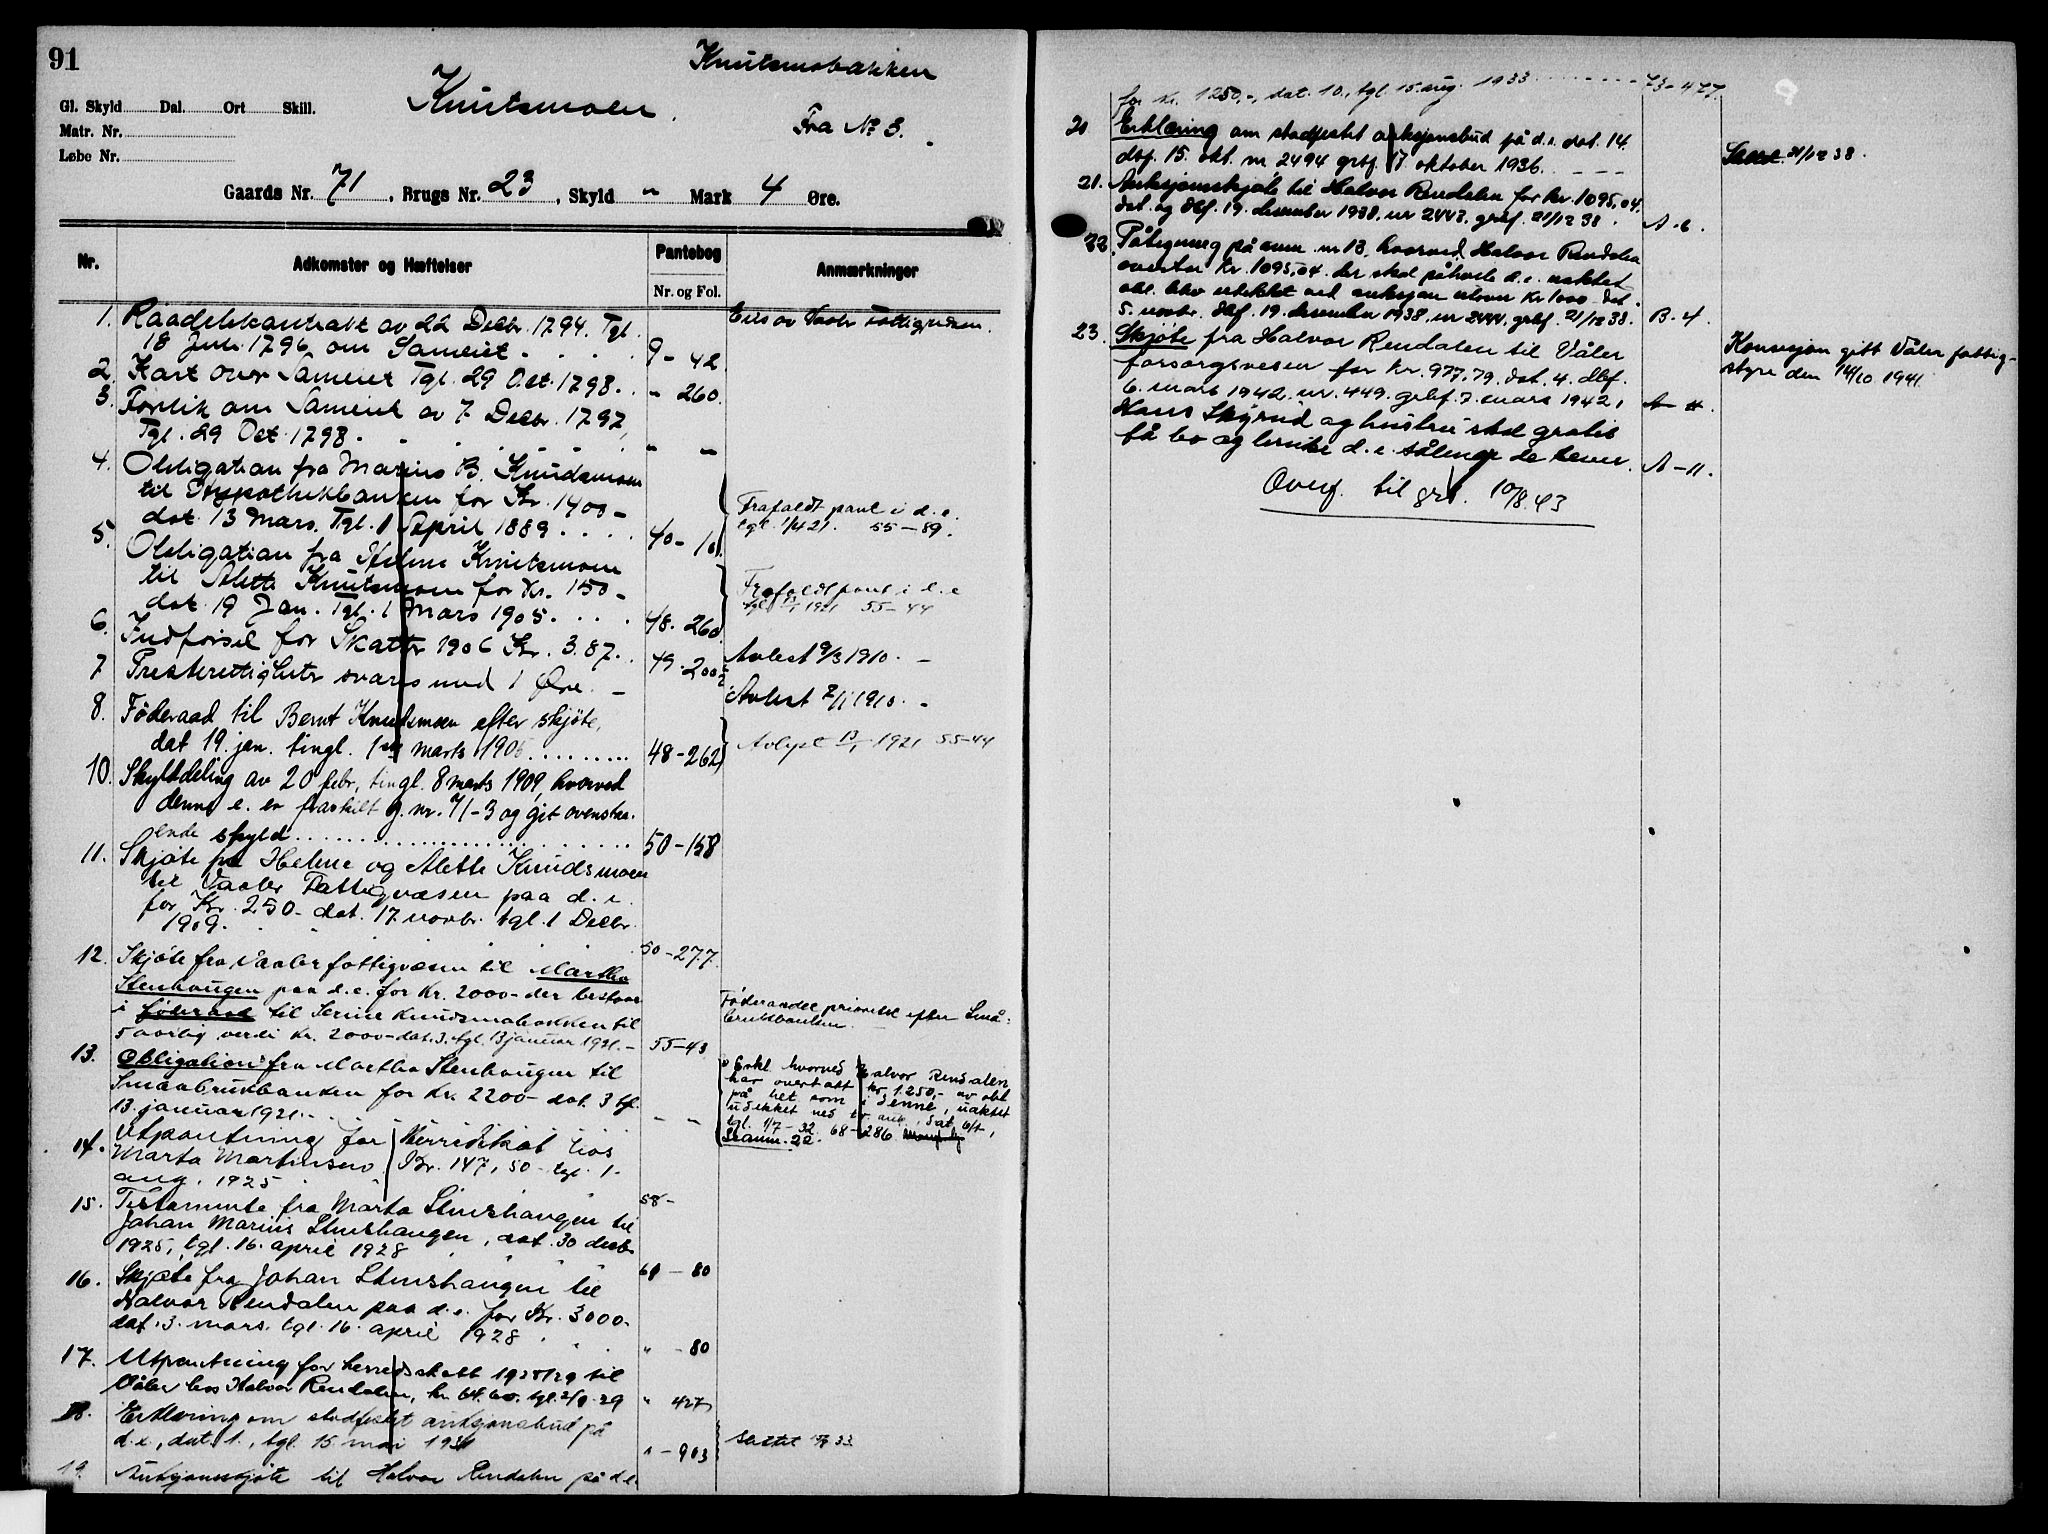 91
Knutsmobakken
Knutsmoen.
Fra No 3.
Gl. Skyld Dal. Ort Skill.
Matr. Nr.
Løbe Nr.
Gaards Nr. 71, Brugs Nr. 23, Skyld " Mark 4 Øre.
Nr. Adkomster og Hæftelser Pantebog Anmærkninger
Nr. og Fol.
1. Raadelskontrakt av 22 Decbr. 1794. Tgl. Eies av Vaaler Fattigvæsen.
18 Juni 1796 om Sameiet. 9 - 42
2. Kart over Sameiet Tgl. 29 Oct. 1798. " 260.
3. Forlik om Sameiet av 7 Decbr. 1797,
Tgl. 29 Oct. 1798. " "
4. Obligation fra Marius B. Knudsmoen
til Hypothekbanken for Kr. 1400 - Frafaldt pant i d.e.
dat. 13 Mars. Tgl. 1 April 1889. 40 - 101. tgl. 1/4 21. 55-89.
5. Obligation fra Helene Knutsmoen
til Alette Knutsmoen for Kr. 150 - Frafaldt pant i d.e
dat. 19 Jan. Tgl. 1 Mars 1905. 48. 260. tgl 13/1 1921 55-44
6. Indførsel for Skatter 1906 Kr. 3.87. 49. 200 Avlest 9/3 1910. -
7 Presterettigheter svares med 1 Øre. - Avlest 7/1 1910. -
8. Føderaad til Bernt Knudsmoen efter skjøte,
dat 19. jan. tingl. 1 marts 1905 48-262 Avlyst 13/1 1921 55-44
10. Skylddeling av 20 febr, tingl. 8 marts 1909, hvorved
denne e. er fraskilt g. nr. 71-3 og git ovenstaa-
ende skyld 50-158
11. Skjøte fra Helene og Alette Knudsmoen
til Vaaler Fattigvæsen paa d. e.
for Kr. 250 - dat. 17. novbr. tgl. 1 Decbr.
1909. 50-277.
12. Skjøte fra Vaaler fattigvæsen til Martha
Stenhaugen paa d.e. for Kr. 2000 - der bestaar Føderaadet prioritet efter Små-
i føderaad til Serine Knudsmobakken til brukbanken
5 aarlig verdi kr. 2000 - dat. 3. tgl. 13 januar 1921. - 55-43
13. Obligation fra Martha Stenhaugen til Erkl. hvorved Halvor Rendalen
Smaabrukbanken for Kr. 2200 - dat 3 tgl. har overtatt kr. 1250,- av obl
13. januar 1921. - " " på het som i denne, uaktet
udekket ved tv. auk., dat. 6/4,
tgl. 1/7-32. 68-286.
Se anm. 22.
14. Utpantning for Herredskat hos
Marta Martinsen Kr. 147,50 - tgl. 1.
aug. 1925 58 -
15. Testamente fra Marta Stenshaugen til
Johan Marius Stenshaugen, dat. 30 decbr
1925, tgl. 16. april 1928 61 - 80
16. Skjøte fra Johan Stenshaugen til
Halvor Rendalen paa d.e. for Kr. 3000.
dat. 3. mars. tgl. 16. april 1928 " - 80
17. Utpantning for herredsskatt 1928/29 til
Våler hos Halvor Rendalen, kr 64.60. tgl. 2/9-29 " 427
18. Erklæring om stadfestet auksjonsbud på
d.e., dat. 1., tgl. 15 mai 1931 " - 903 Slettet 33
19. Auksjonsskjøte til Halvor Rendalen på d.e.
for kr. 1250,-, dat. 10., tgl. 15. aug. 1933 73-477.
20 Erklæring om stadfestet auksjonsbud på d.e. dat. 14.
dbf. 15. okt. nr 2494 grbf. 17. oktober 1936. Slettet 21/12 38.
21. Auksjonsskjøte til Halvor Rendalen for kr. 1095,04.
dat. og dbf. 19. desember 1938. nr 2443. grbf. 21/12 38. A-6.
22. Påtegning på anm. nr 13, hvorved Halvor Rendalen
overtar kr. 1095,04. der skal påhvile d.e. uaktet
obl. blev udekket ved auksjon utover kr 1000. dat.
5. novbr. dbf. 19. desember 1938. nr 2444. grbf. 21/12 38. B-4.
23. Skjøte fra Halvor Rendalen til Våler Konsesjon gitt Våler fattig-
forsorgsvesen for kr. 977.79. dat. 4. dbf. styre den 14/10 1941.
6. mars 1942. nr. 449. grbf. 7. mars 1942, A - 11.
Hans Skyrud og hustru skal gratis
få bo og bruke d.e. sålenge de lever. A-11.
Overf. til grb. 10/8.43